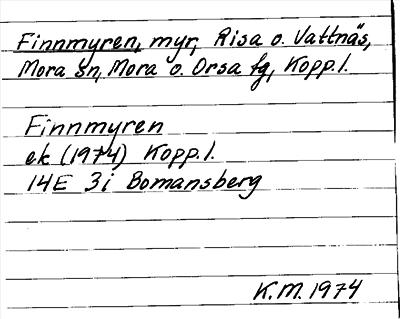 Finnmyren, myr, Risa o. Vattnäs,
Mora sn, Mora o. Orsa fg, Kopp. l.
Finnmyren
ek (1974) Kopp. l.
14E 3i Bomansberg
K.M. 1974